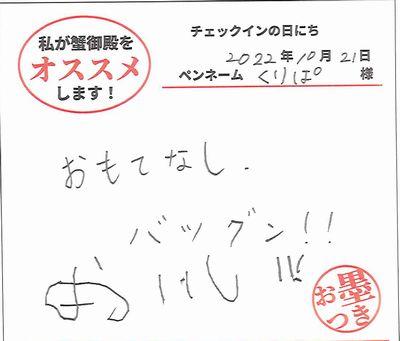 私が蟹御殿を
オススメ
します！
チェックインの日にち
2022年10月21日
ペンネーム くりぱ 様
おもてなし.
バツグン!!
お墨つき